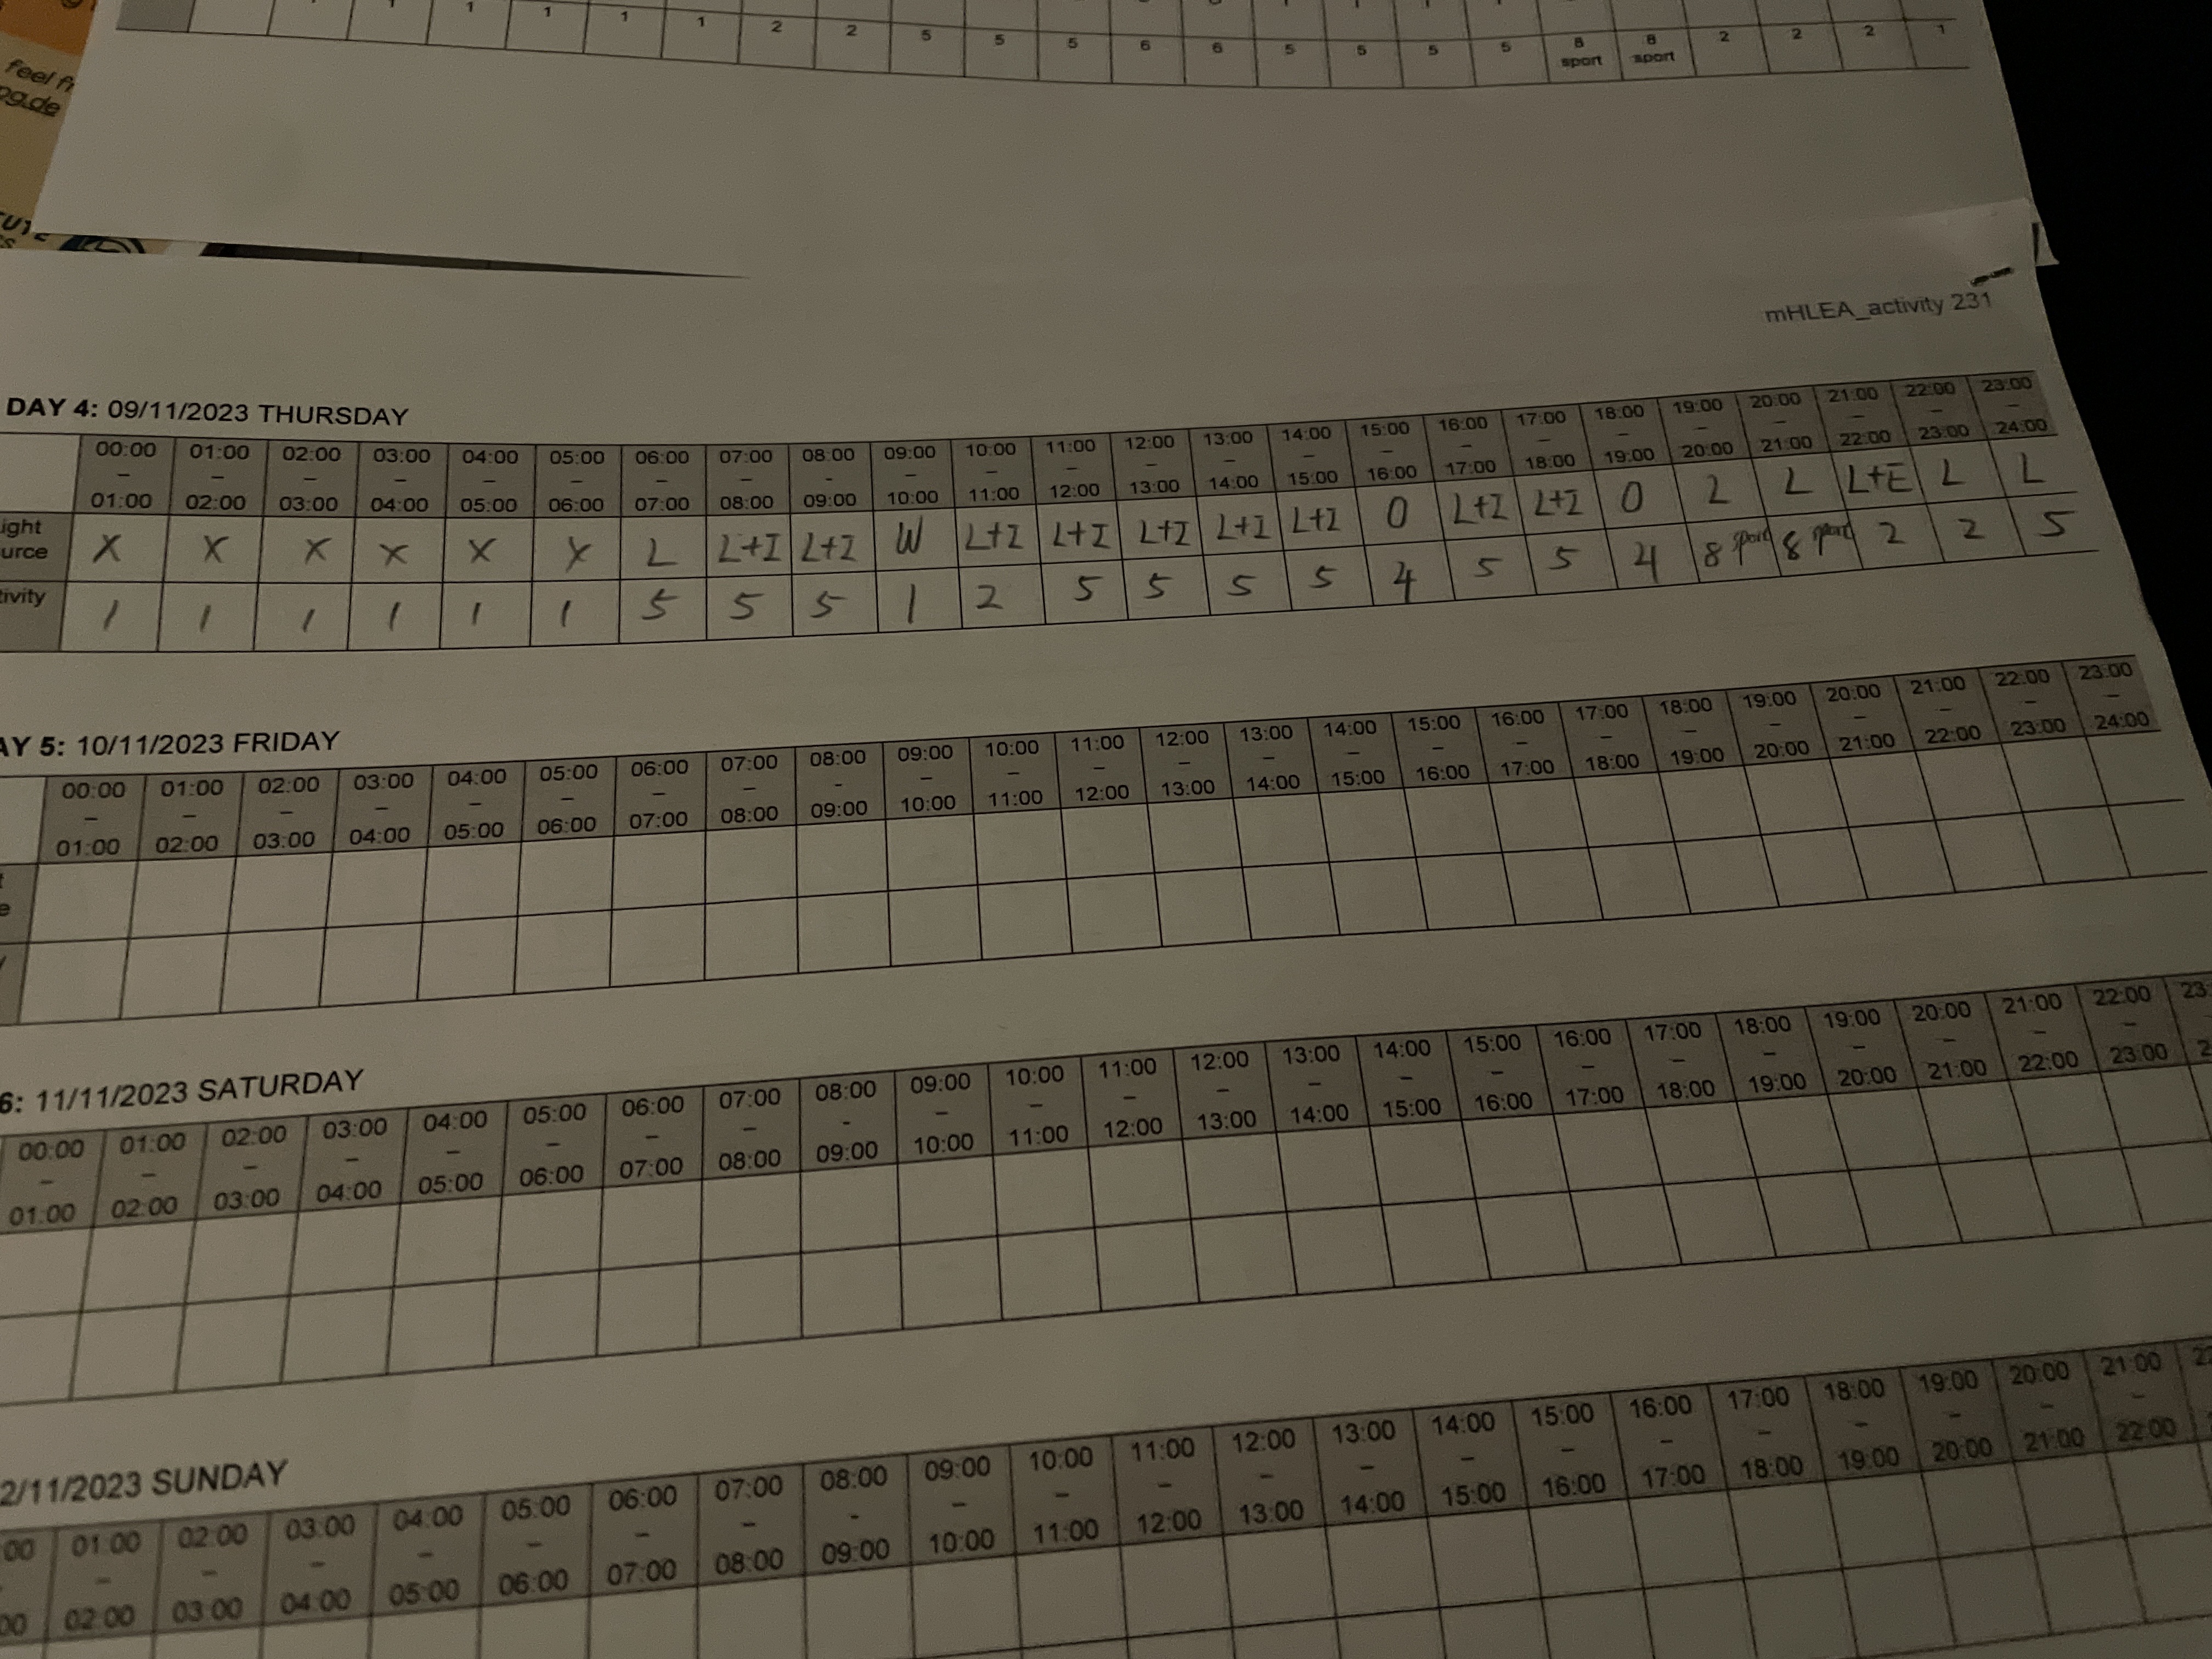 mHLEA_activity 231
1 1 1 1 1 2 2 5 5 5 6 6 5 5 5 5 8 sport 8 sport 2 2 2 1
DAY 4: 09/11/2023 THURSDAY
00:00 – 01:00 01:00 – 02:00 02:00 – 03:00 03:00 – 04:00 04:00 – 05:00 05:00 – 06:00 06:00 – 07:00 07:00 – 08:00 08:00 – 09:00 09:00 – 10:00 10:00 – 11:00 11:00 – 12:00 12:00 – 13:00 13:00 – 14:00 14:00 – 15:00 15:00 – 16:00 16:00 – 17:00 17:00 – 18:00 18:00 – 19:00 19:00 – 20:00 20:00 – 21:00 21:00 – 22:00 22:00 – 23:00 23:00 – 24:00
ight urce X X X X X X L L+I L+I W L+I L+I L+I L+I L+I O L+I L+I O L L L+E L L
tivity 1 1 1 1 1 1 5 5 5 1 2 5 5 5 5 4 5 5 4 8 sport 8 sport 2 2 5
AY 5: 10/11/2023 FRIDAY
00:00 – 01:00 01:00 – 02:00 02:00 – 03:00 03:00 – 04:00 04:00 – 05:00 05:00 – 06:00 06:00 – 07:00 07:00 – 08:00 08:00 – 09:00 09:00 – 10:00 10:00 – 11:00 11:00 – 12:00 12:00 – 13:00 13:00 – 14:00 14:00 – 15:00 15:00 – 16:00 16:00 – 17:00 17:00 – 18:00 18:00 – 19:00 19:00 – 20:00 20:00 – 21:00 21:00 – 22:00 22:00 – 23:00 23:00 – 24:00
6: 11/11/2023 SATURDAY
00:00 – 01:00 01:00 – 02:00 02:00 – 03:00 03:00 – 04:00 04:00 – 05:00 05:00 – 06:00 06:00 – 07:00 07:00 – 08:00 08:00 – 09:00 09:00 – 10:00 10:00 – 11:00 11:00 – 12:00 12:00 – 13:00 13:00 – 14:00 14:00 – 15:00 15:00 – 16:00 16:00 – 17:00 17:00 – 18:00 18:00 – 19:00 19:00 – 20:00 20:00 – 21:00 21:00 – 22:00 22:00 – 23:00 23:
2/11/2023 SUNDAY
:00 00 01:00 – 02:00 02:00 – 03:00 03:00 – 04:00 04:00 – 05:00 05:00 – 06:00 06:00 – 07:00 07:00 – 08:00 08:00 – 09:00 09:00 – 10:00 10:00 – 11:00 11:00 – 12:00 12:00 – 13:00 13:00 – 14:00 14:00 – 15:00 15:00 – 16:00 16:00 – 17:00 17:00 – 18:00 18:00 – 19:00 19:00 – 20:00 20:00 – 21:00 21:00 – 22:00